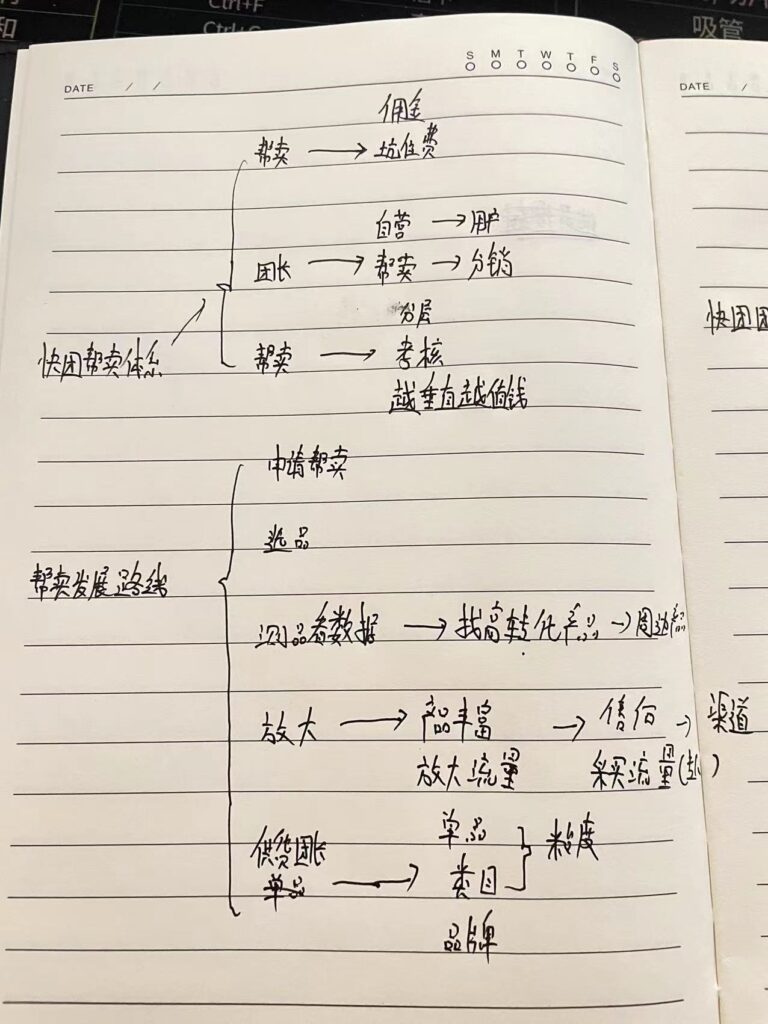 Ctrl+F
和
吸管
S M T W T F S
DATE / /
DATE /
佣金
帮卖 → 坑位费
自营 → 用户
团长 → 帮卖 → 分销
分层
快团帮卖体系
帮卖 → 考核
越垂直越值钱
快团团
申请帮卖
选品
帮卖发展路线
测品看数据 → 找高转化产品 → 周边
放大 → 产品丰富 → 售后 → 渠道
放大流量 采买流量
供货团长 单品
单品 → 类目 } 粘度
品牌